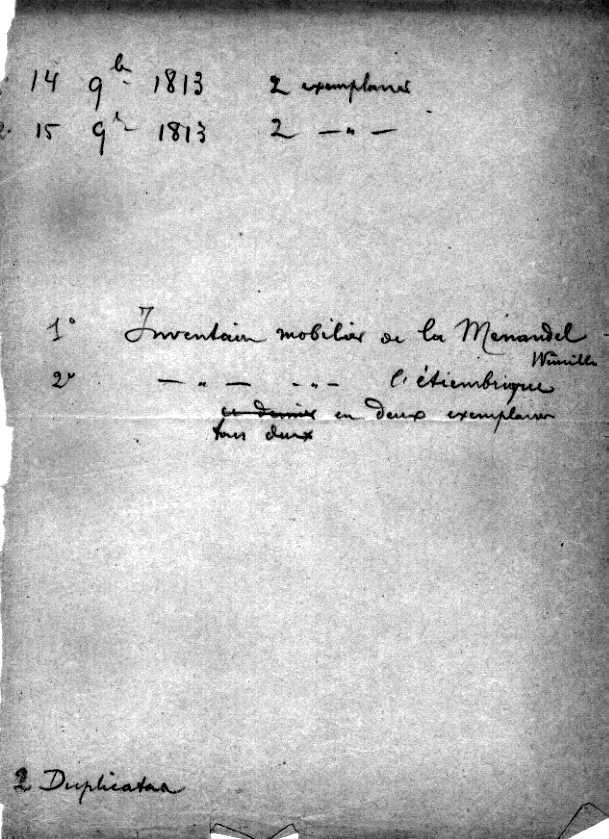 14 9bre 1813 2 exemplaires
2. 15 9bre 1813 2 — " —
1° Inventaire mobilier de la Menandel
Wimille
2° — " — - " - l'étiembrique
ce dernier en deux exemplaires
tous deux
2 Duplicataa